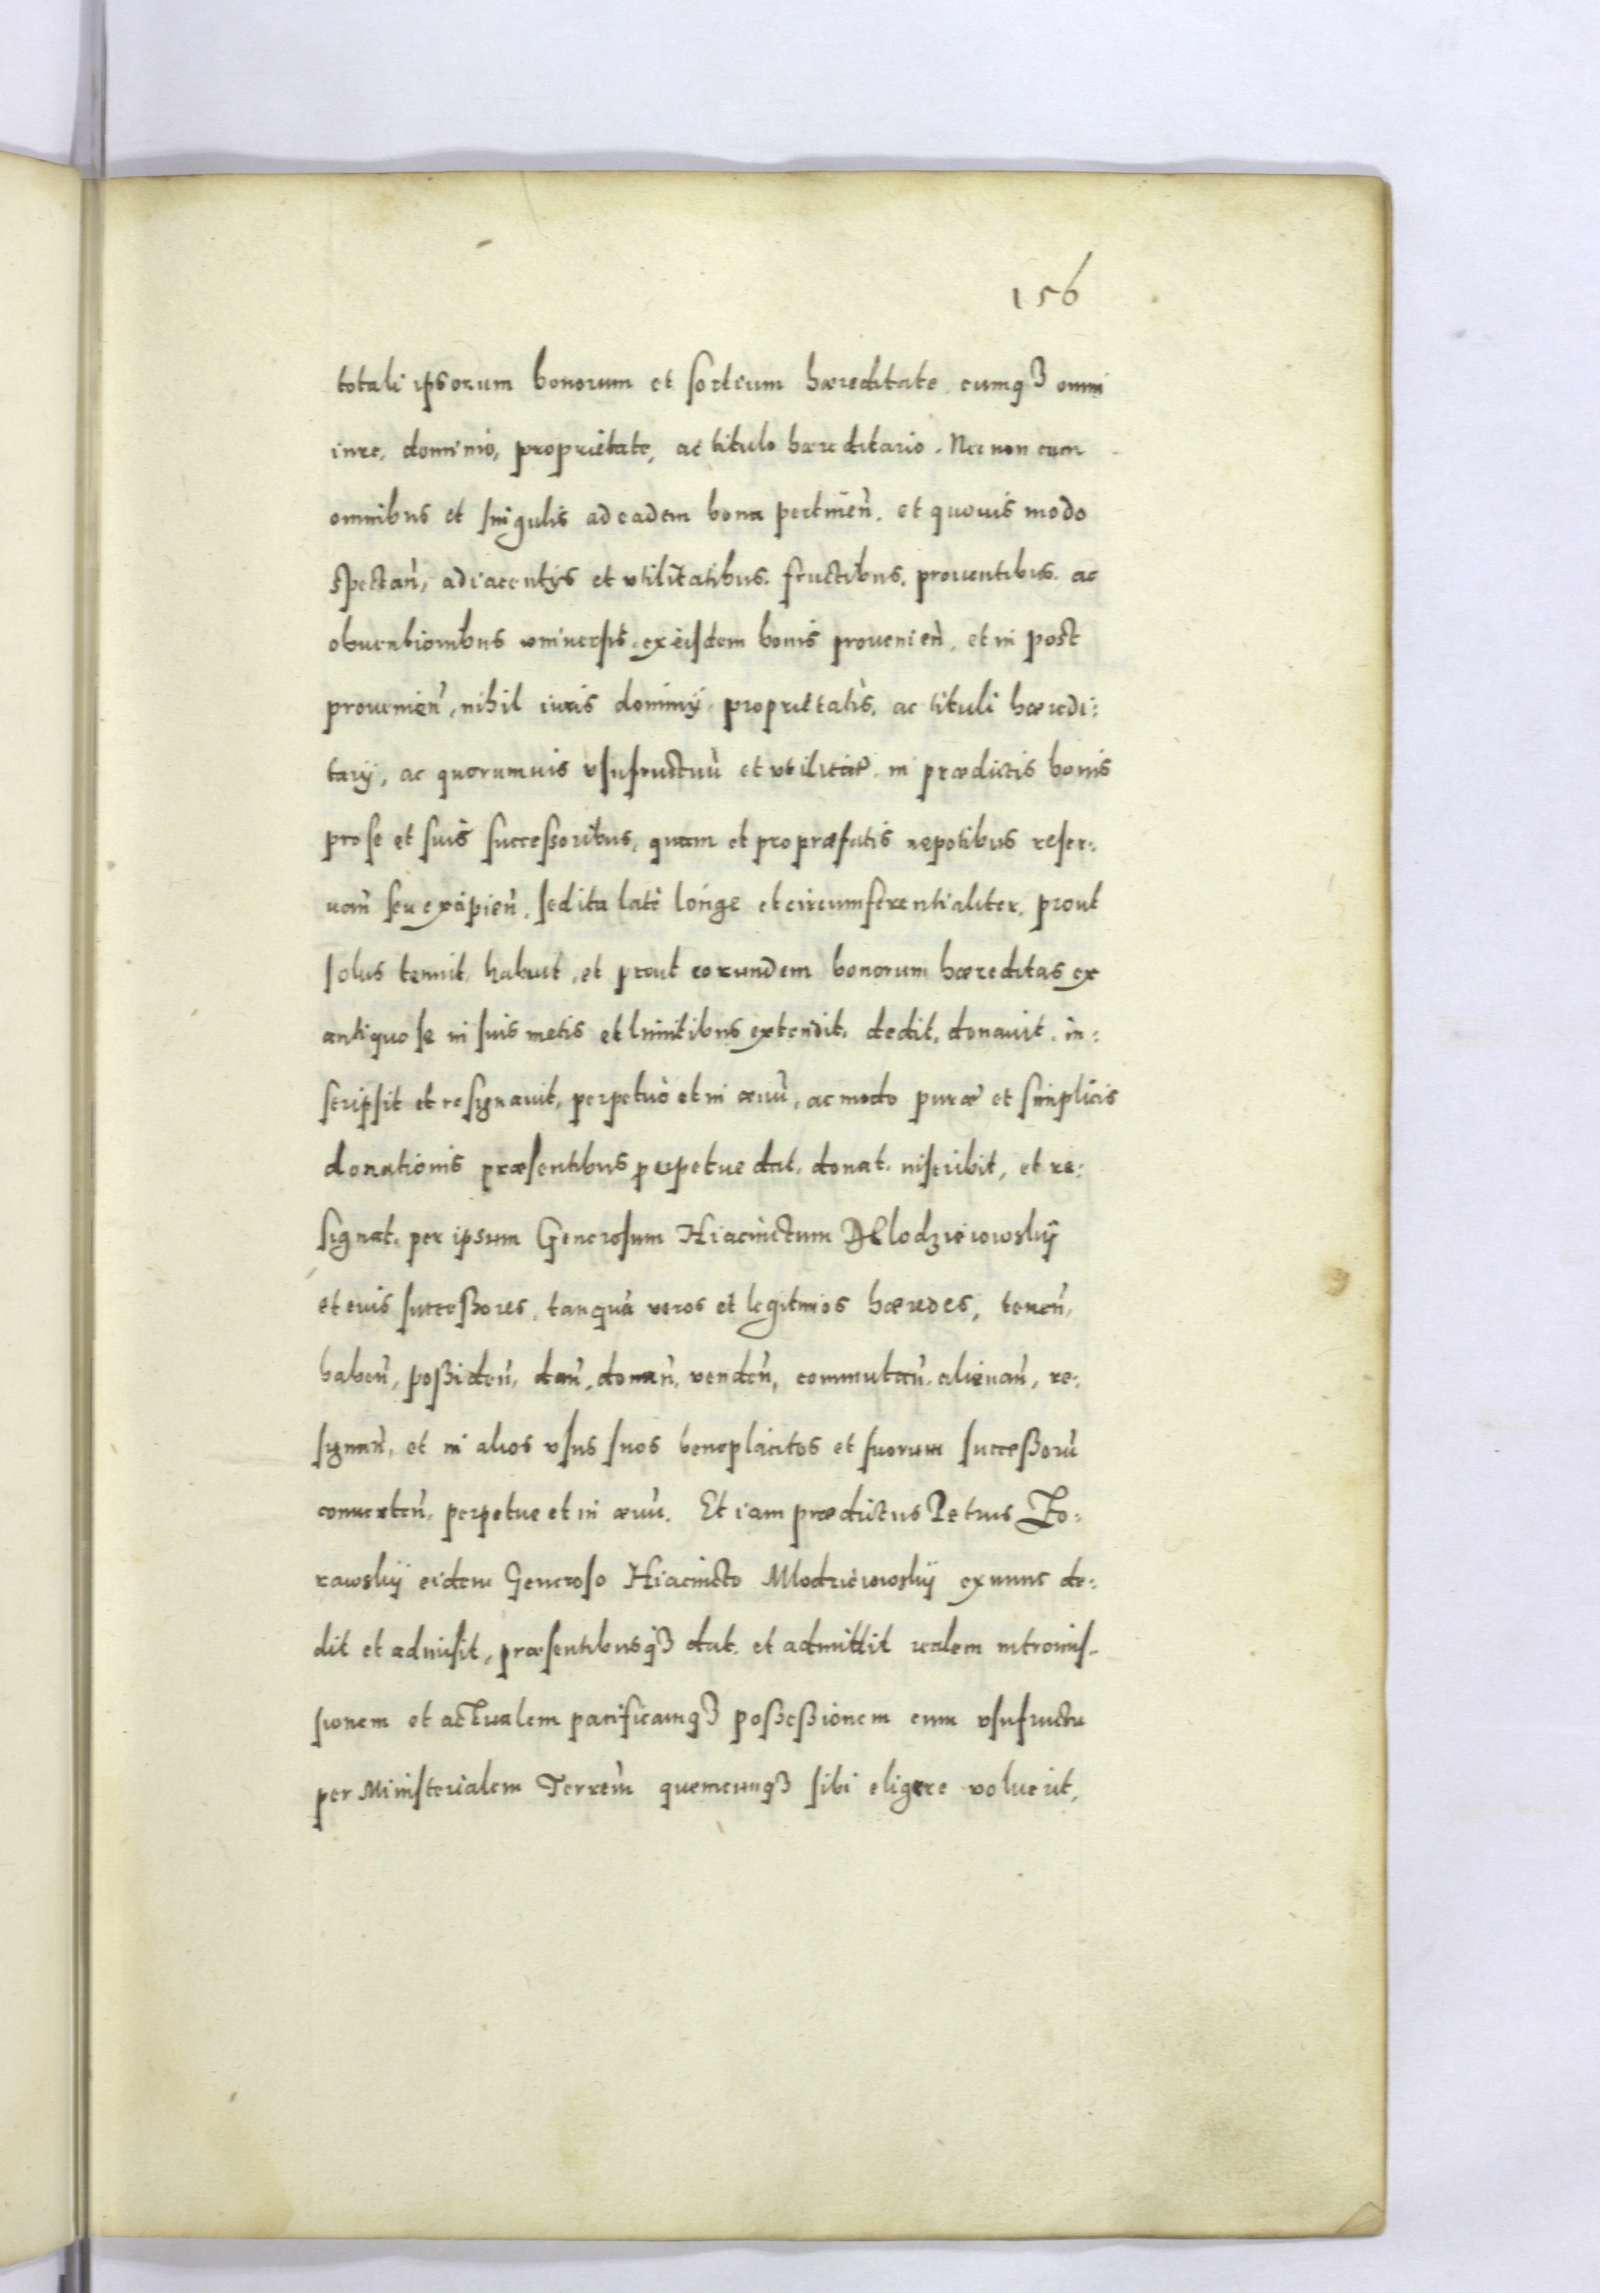 156
totali ipsorum bonorum et sortium hæreditate, cumqꝫ omni
iure, dominio, proprietate, ac titulo hæreditario. Nec non cum
omnibus et singulis ad eadem bona pertineñ, et quouis modo
spectañ, adiacentijs et vtilitatibus, fructibus, prouentibus, ac
obuentionibus vniuersis, ex eisdem bonis prouenieñ, et in post
prouenieñ, nihil iuris dominij proprietatis, ac tituli hæredi:
tarij, ac quorumuis vsufructuū et vtilitat, in prædictis bonis
pro se et suis successoribus, quam et pro præfatis nepotibus reser:
uañ seu excipieñ, sed ita late longe et circumferentialiter, prout
solus tenuit habuit, et prout eorundem bonorum hæreditas ex
antiquo se in suis metis et limitibus extendit, dedit, donauit, in:
scripsit et resignauit, perpetuò et in æuū, ac modo puræ et simplicis
donationis præsentibus perpetue dat, donat, inscribit, et re:
signat, per ipsum Generosum Hiacinctum Mlodzieiowskij
et euis successores, tanquā veros et legitimos hæredes, teneñ,
habeñ, possideñ, dañ, donañ, vendeñ, commutañ, alienañ, re:
signañ, et in alios vsus suos beneplacitos et suorum successorū
conuerteñ, perpetue et in æuū. Et iam prædictus Petrus Zo:
rawskij eidem Generoso Hiacincto Mlodzieiowskij ex nunc de:
dit et admisit, præsentibusqꝫ dat, et admittit realem intromis-
sionem et actualem pacificamqꝫ possessionem cum vsufructu
per Ministerialem Terreñ quemcunqꝫ sibi eligere voluerit,